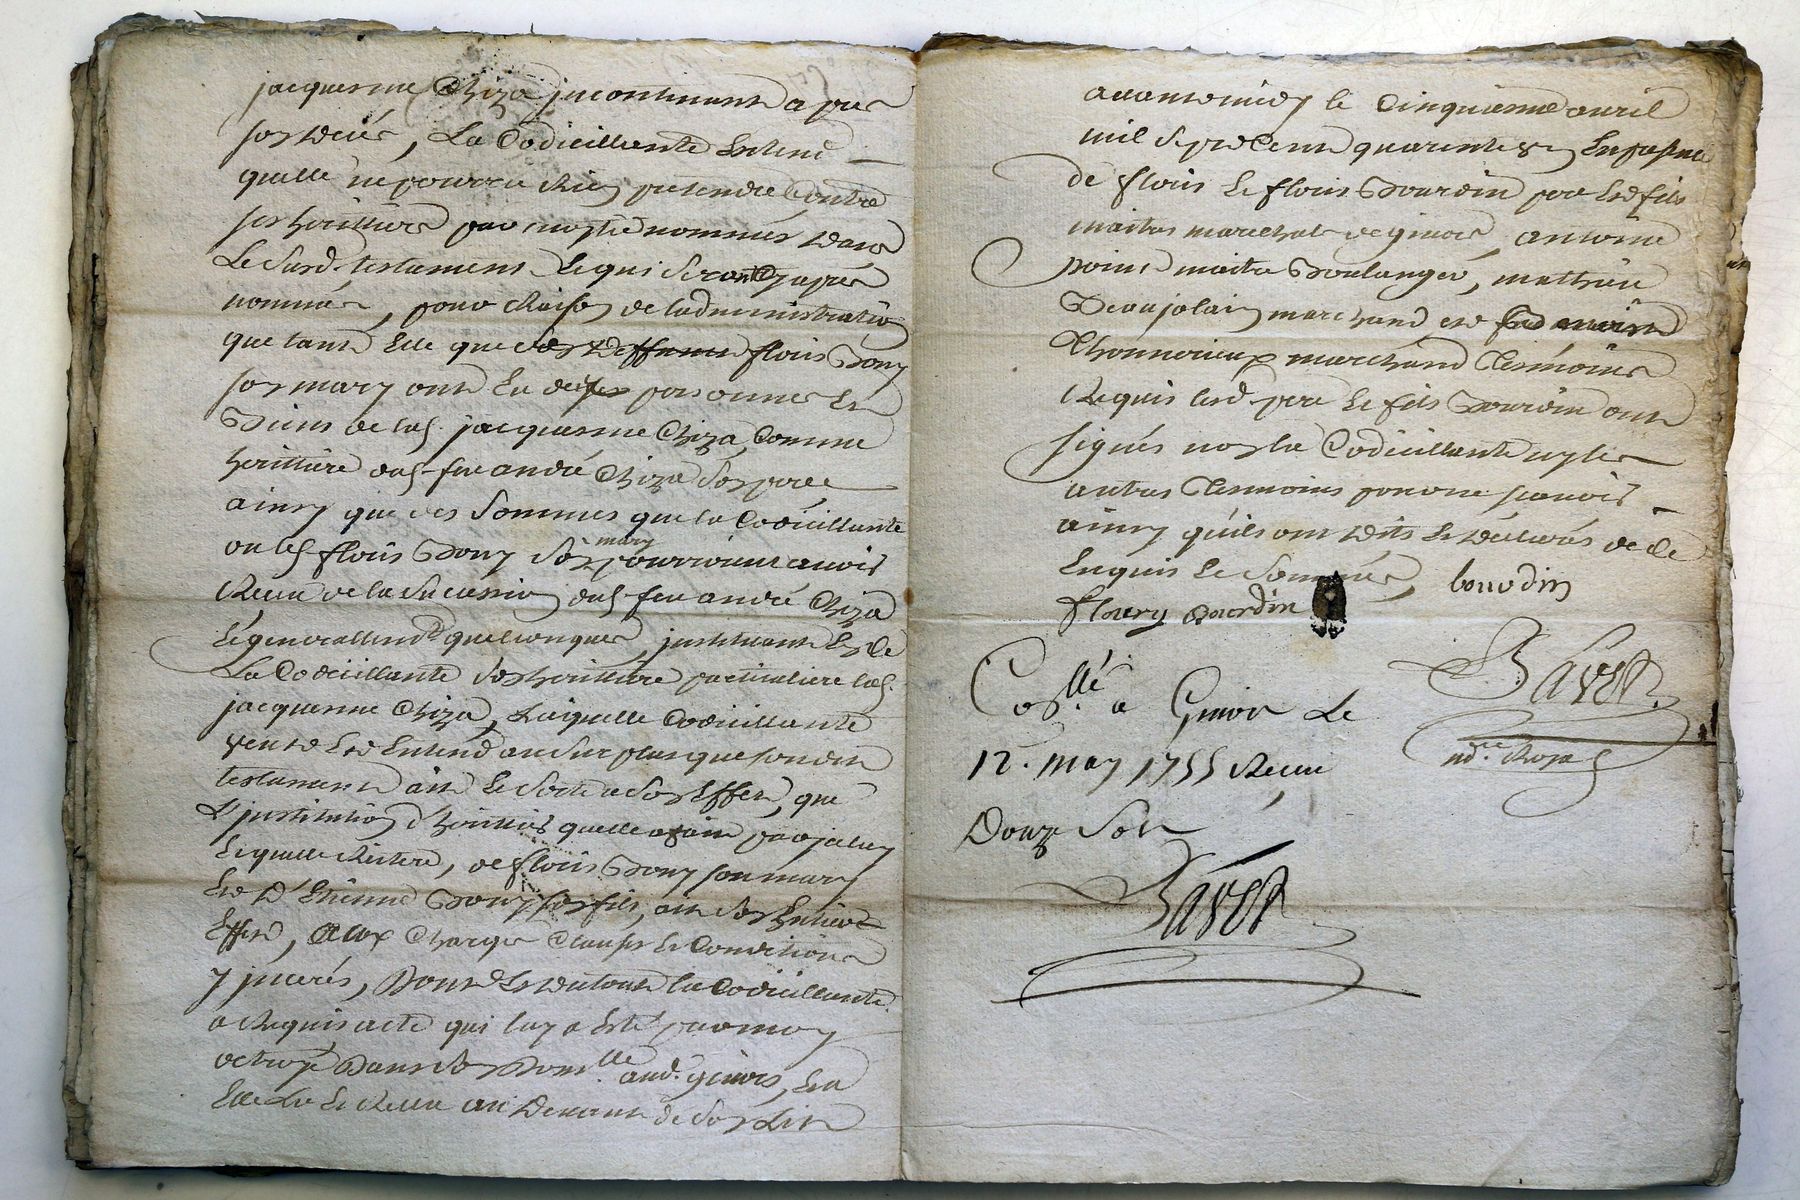 jacquemme Chiza jncontinant apres
son deces, La Codicillante Entend
quelle ne pourra Rien pretendre Contre
ses heritiers par nostre nommés dans
Le susd. testament, Le qui seront cy apres
nommés, pour Raison de ladministration
que tant Elle que floris Bony
son mary ont Eu personne Et
Biens de lad. jacquemme Chiza, Comme
heritiere dud. feu andré Chiza son pere
ainsy que des sommes que la Codicillante
ou led. floris Bony son mary pourroient avoir
Receu de la sucession dud. feu andré Chiza
Et generallemt quelconques, jnstituant
La Codicillante son heritiere particuliere lad.
jacquemme Chiza, Laquelle Codicillante
veut Et Entend au surplus que sondit
testament ait Et sorte son Effet, que
L'jnstitution d'heritier quelle a faite par jceluy
Lequelle Reitere, de floris Bony son mary
Et d'Etienne Bony son fils, ait son Entier
Effet, aux Charges Clauses Et Conditions
y jncerés, Dont Et du tout la Codicillante
a Requis acte qui luy a Eté par moy
octroyé Dans son Domlle aud. givors, En
Elle Lu Et Receu au Devant de son Lit
avant midy le Cinquieme avril
mil sept Cent quarente En presence
de floris Et floris Bourdin pere Et fils
maitres marechals de givors, antoine
point maitre Boulanger, mathieu
Beaujolain marchand et
Thonnerieux marchand Temoins
Requis lesd. pere Et fils Bourdin ont
signés non la Codicillante ny les
autres Temoins pour ne sçavoir
ainsy qu'ils ont Dits Et Declarés de Ce
Enquis Et Sommés, bourdin
floury Bourdin
Bavet
Collé a Givors Le
ndre. Royal
12. may 1755 Receu
Douze sols
Bavet